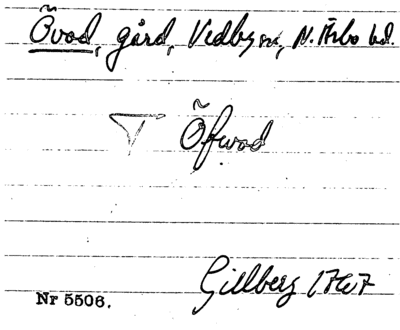 Övad, gård, Vedby sn, N. Åsbo hd.
Öfwad
Gillberg 1767
Nr 5506.